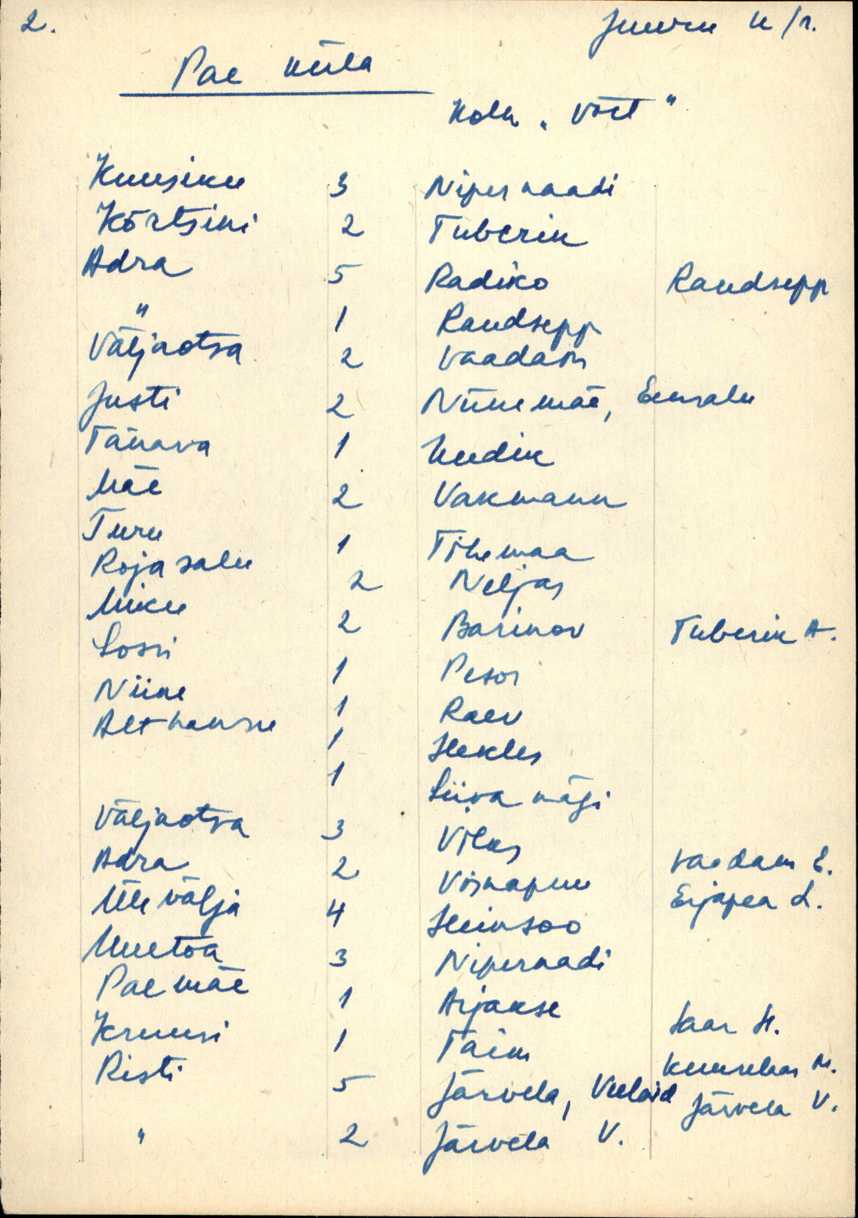 2. Juuru k/n.
Pae küla
Kolh. "Võit"
Kuusiku 3 Nipernaadi
Kõrtsini 2 Tuberik
Adra 5 Radiko Raudsepp
" 1 Raudsepp
Väljaotsa 2 Vaadam
Justi 2 Niinemäe, Eensalu
Tänava 1 Uudik
Mäe 2 Vakmann
Turu 1 Tihemaa
Rojasalu 2 Neljas
Miku 2 Barinov Tuberik A.
Lossi 1 Pesor
Niine 1 Raev
Althansu 1 Hekles
1 Liivamägi
Väljaotsa 3 Vilus
Adra 2 Võsnapuu Vaadam E.
Ülevälja 4 Heinsoo Erjapea L.
Uuetoa 3 Nipernaadi
Paemäe 1 Arjakse
Kruusi 1 Taim Saar H.
Risti 5 Järvela, Kuuskas M.
" 2 Järvela V. Järvela V.